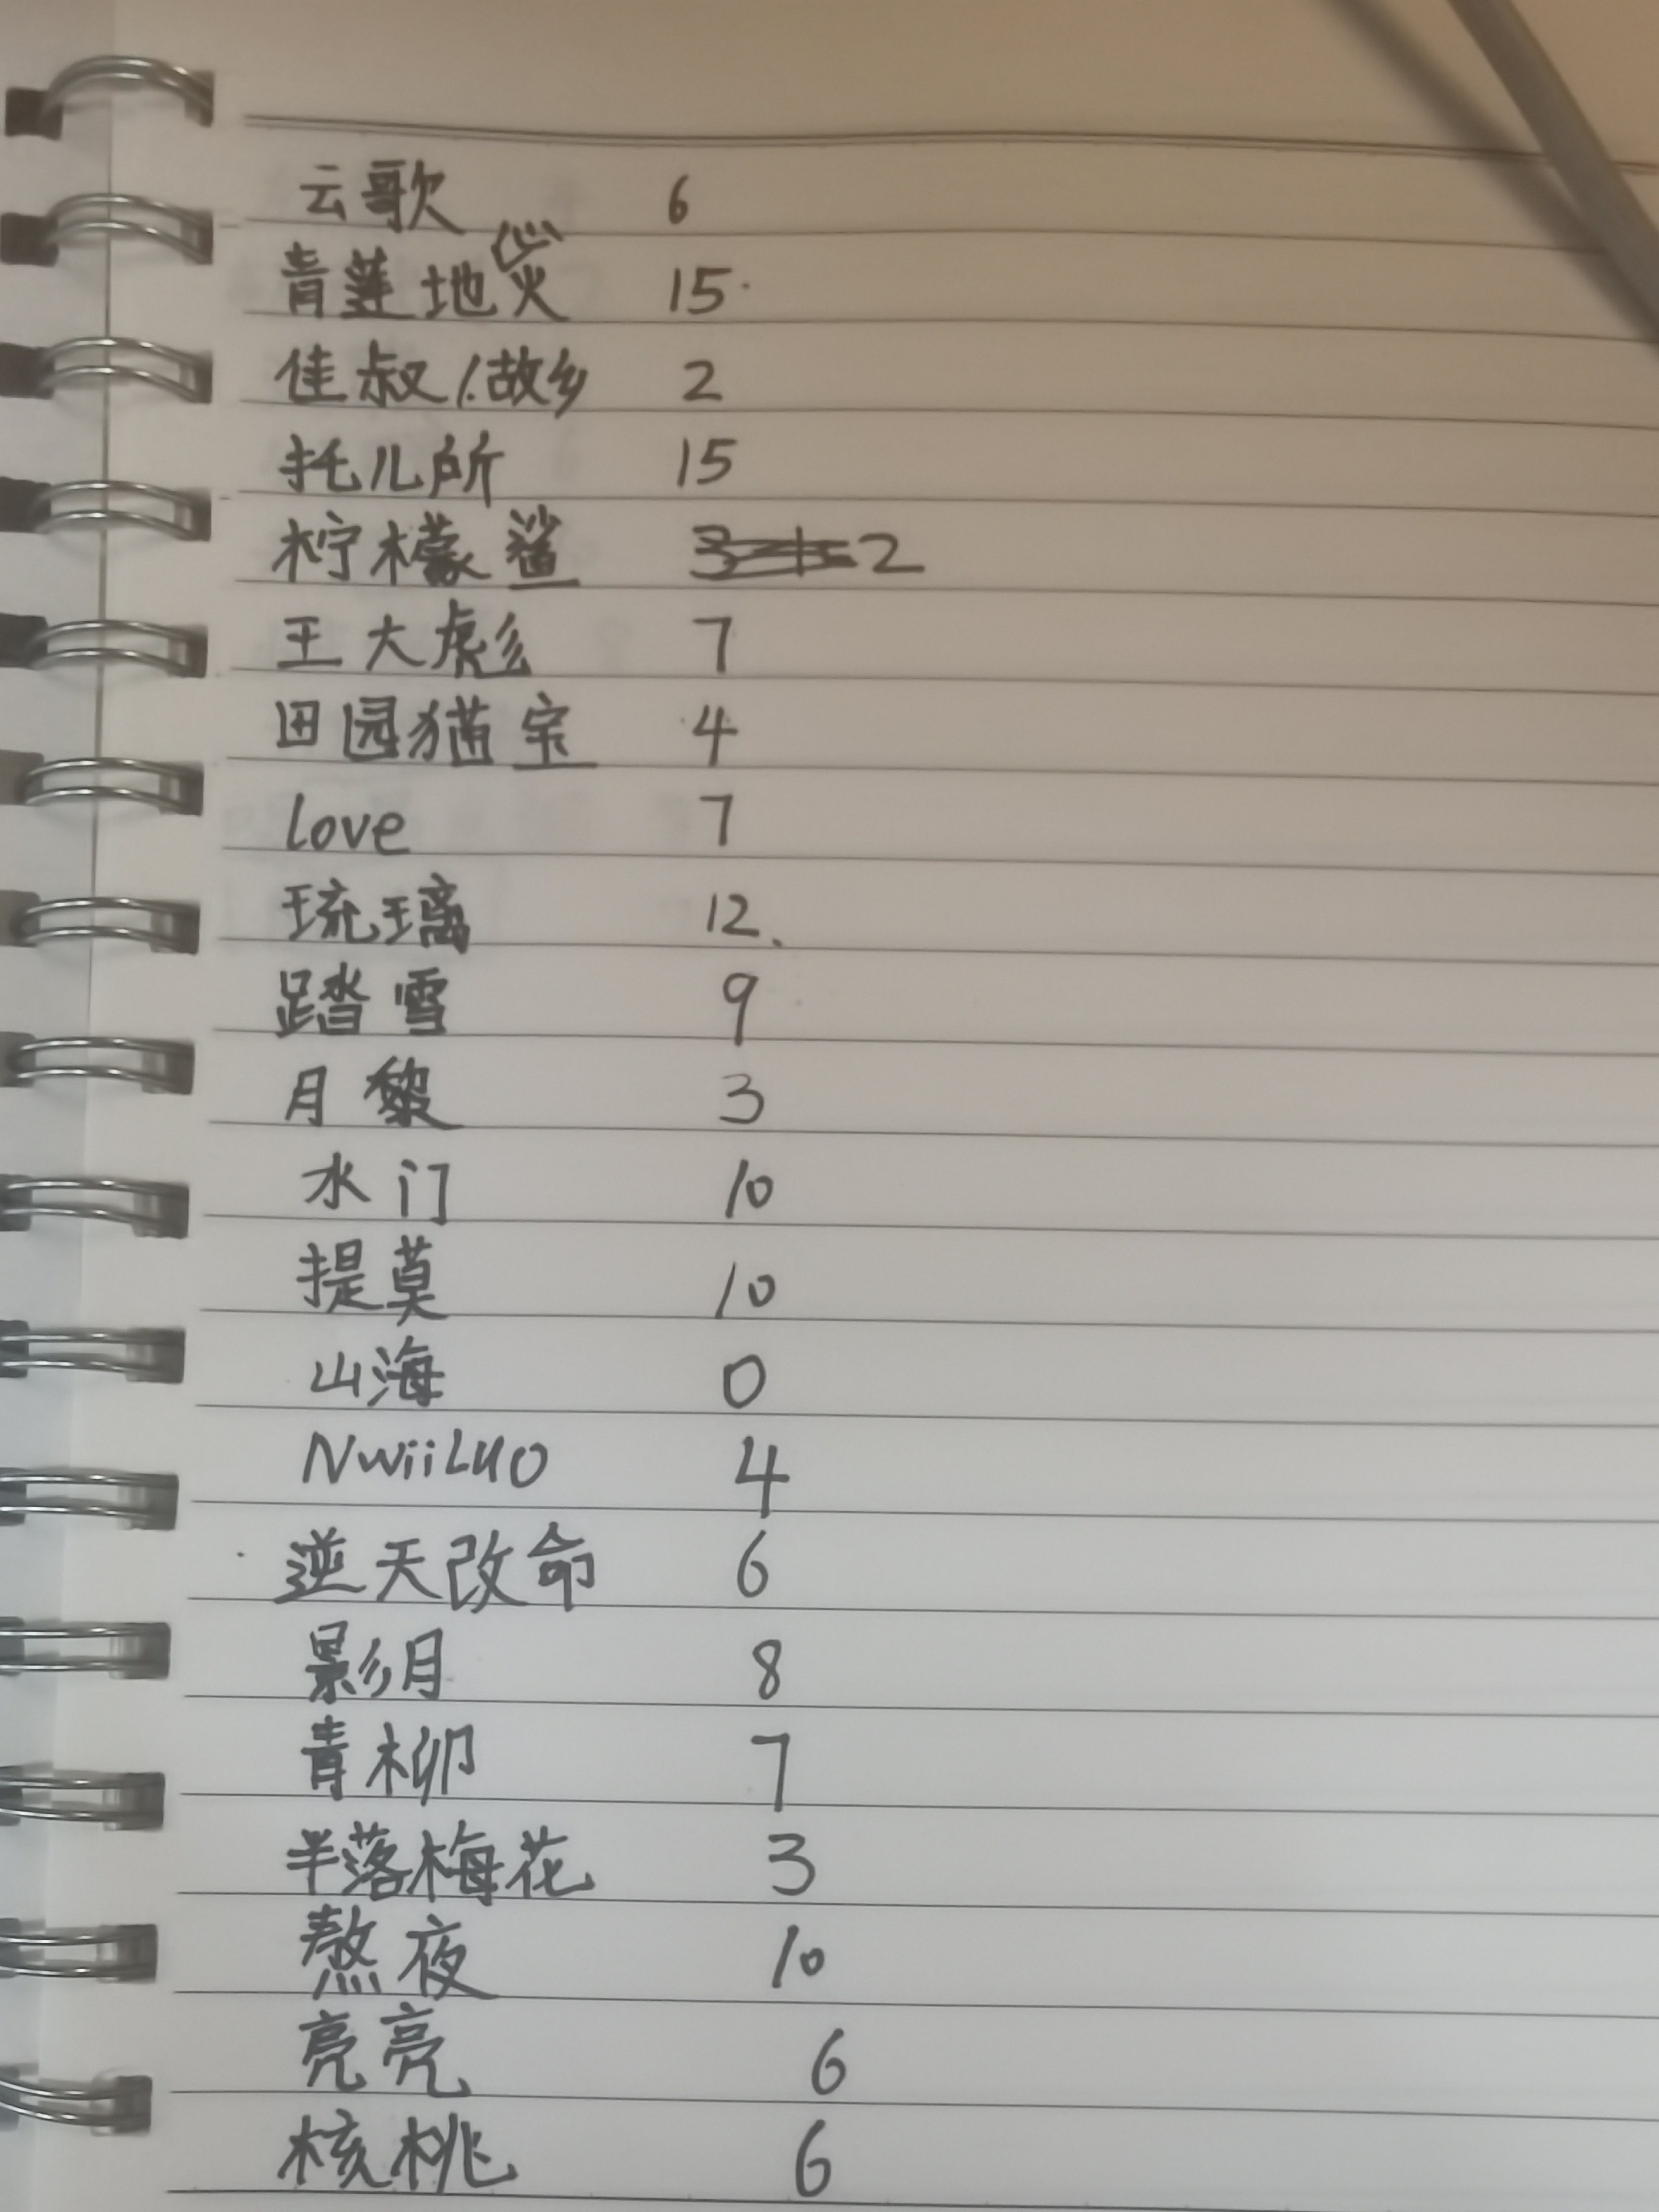 云歌 6
青莲地心火 15
佳叔/.故乡 2
托儿所 15
柠檬鲨 2
王大彪 7
田园猫宝 4
love 7
琉璃 12、
踏雪 9
月黎 3
水门 10
提莫 10
山海 0
NwiiLuo 4
逆天改命 6
影月 8
青柳 7
半落梅花 3
熬夜 10
亮亮 6
核桃 6